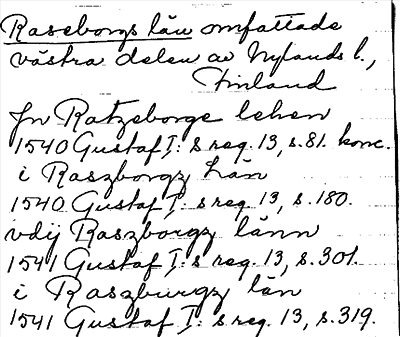 Raseborgs län omfattade
västra delen av Nylands l.,
Finland
Jn Ratzeborge lehen
1540 Gustaf I:s reg. 13, s. 81. konc.
i Raszborgz hän
1540 Gustaf I:s reg. 13, s. 180.
vdij Raszborgz länn
1541 Gustaf I:s reg. 13, s. 301.
i Raszburgz län
1541 Gustaf I:s reg. 13, s. 319.